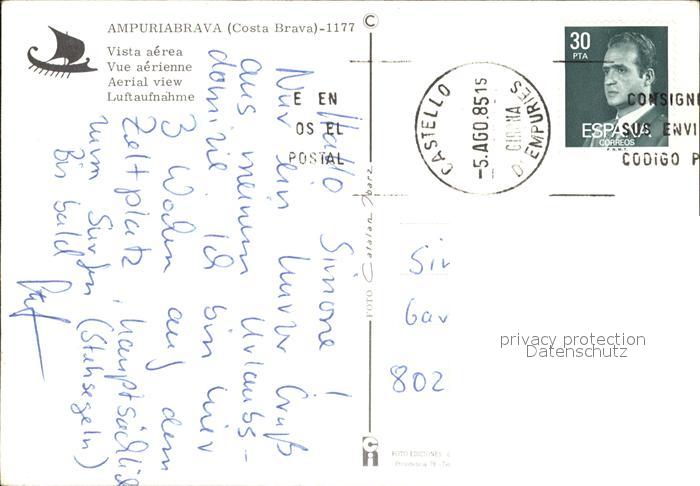 AMPURIABRAVA (Costa Brava)-1177
Vista aérea
Vue aérienne
Aerial view
Luftaufnahme
Hallo Simone!
Nur ein kurzer Gruß
aus meinem Urlaubs-
domizil. Ich bin hier
3 Wochen auf dem
Zeltplatz, hauptsächlich
zum Surfen (Stehsegeln)
Bis bald
©
FOTO Catalan Ibarz
E EN
OS EL
POSTAL
CASTELLO
-5.AGO.8515
D'EMPURIES
CONSIGNE
SUS ENVI
CODIGO P
30
PTA
ESPAÑA
CORREOS
F.N.M.T.
Sir
Gar
802
privacy protection
Datenschutz
FOTO EDICIONES